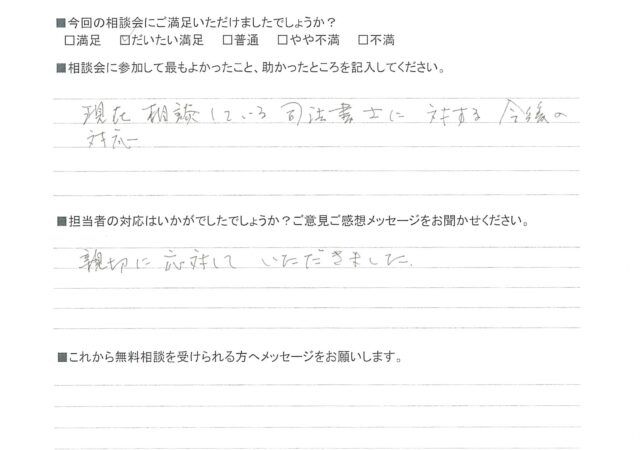 ■今回の相談会にご満足いただけましたでしょうか?
□満足 ☑だいたい満足 □普通 □やや不満 □不満
■相談会に参加して最もよかったこと、助かったところを記入してください。
現在相談している司法書士に対する今後の
対応
■担当者の対応はいかがでしたでしょうか?ご意見ご感想メッセージをお聞かせください。
親切に応対していただきました.
■これから無料相談を受けられる方へメッセージをお願いします。